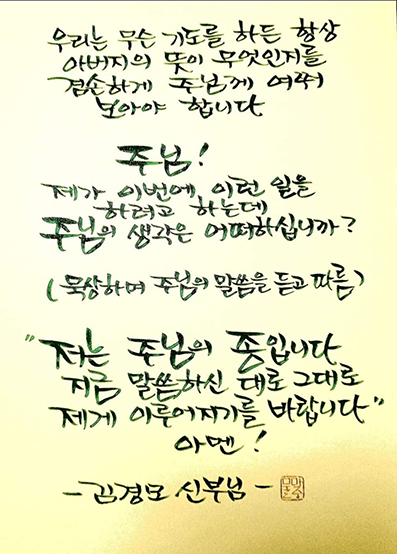 우리는 무슨 기도를 하든 항상
아버지의 뜻이 무엇인지를
겸손하게 주님께 여쭤
보아야 합니다
주님!
제가 이번에 이런 일을
하려고 하는데
주님의 생각은 어떠하십니까?
(묵상하며 주님의 말씀을 듣고 따름)
"저는 주님의 종입니다
지금 말씀하신 대로 그대로
제게 이루어지기를 바랍니다"
아멘!
- 김경모 신부님 -